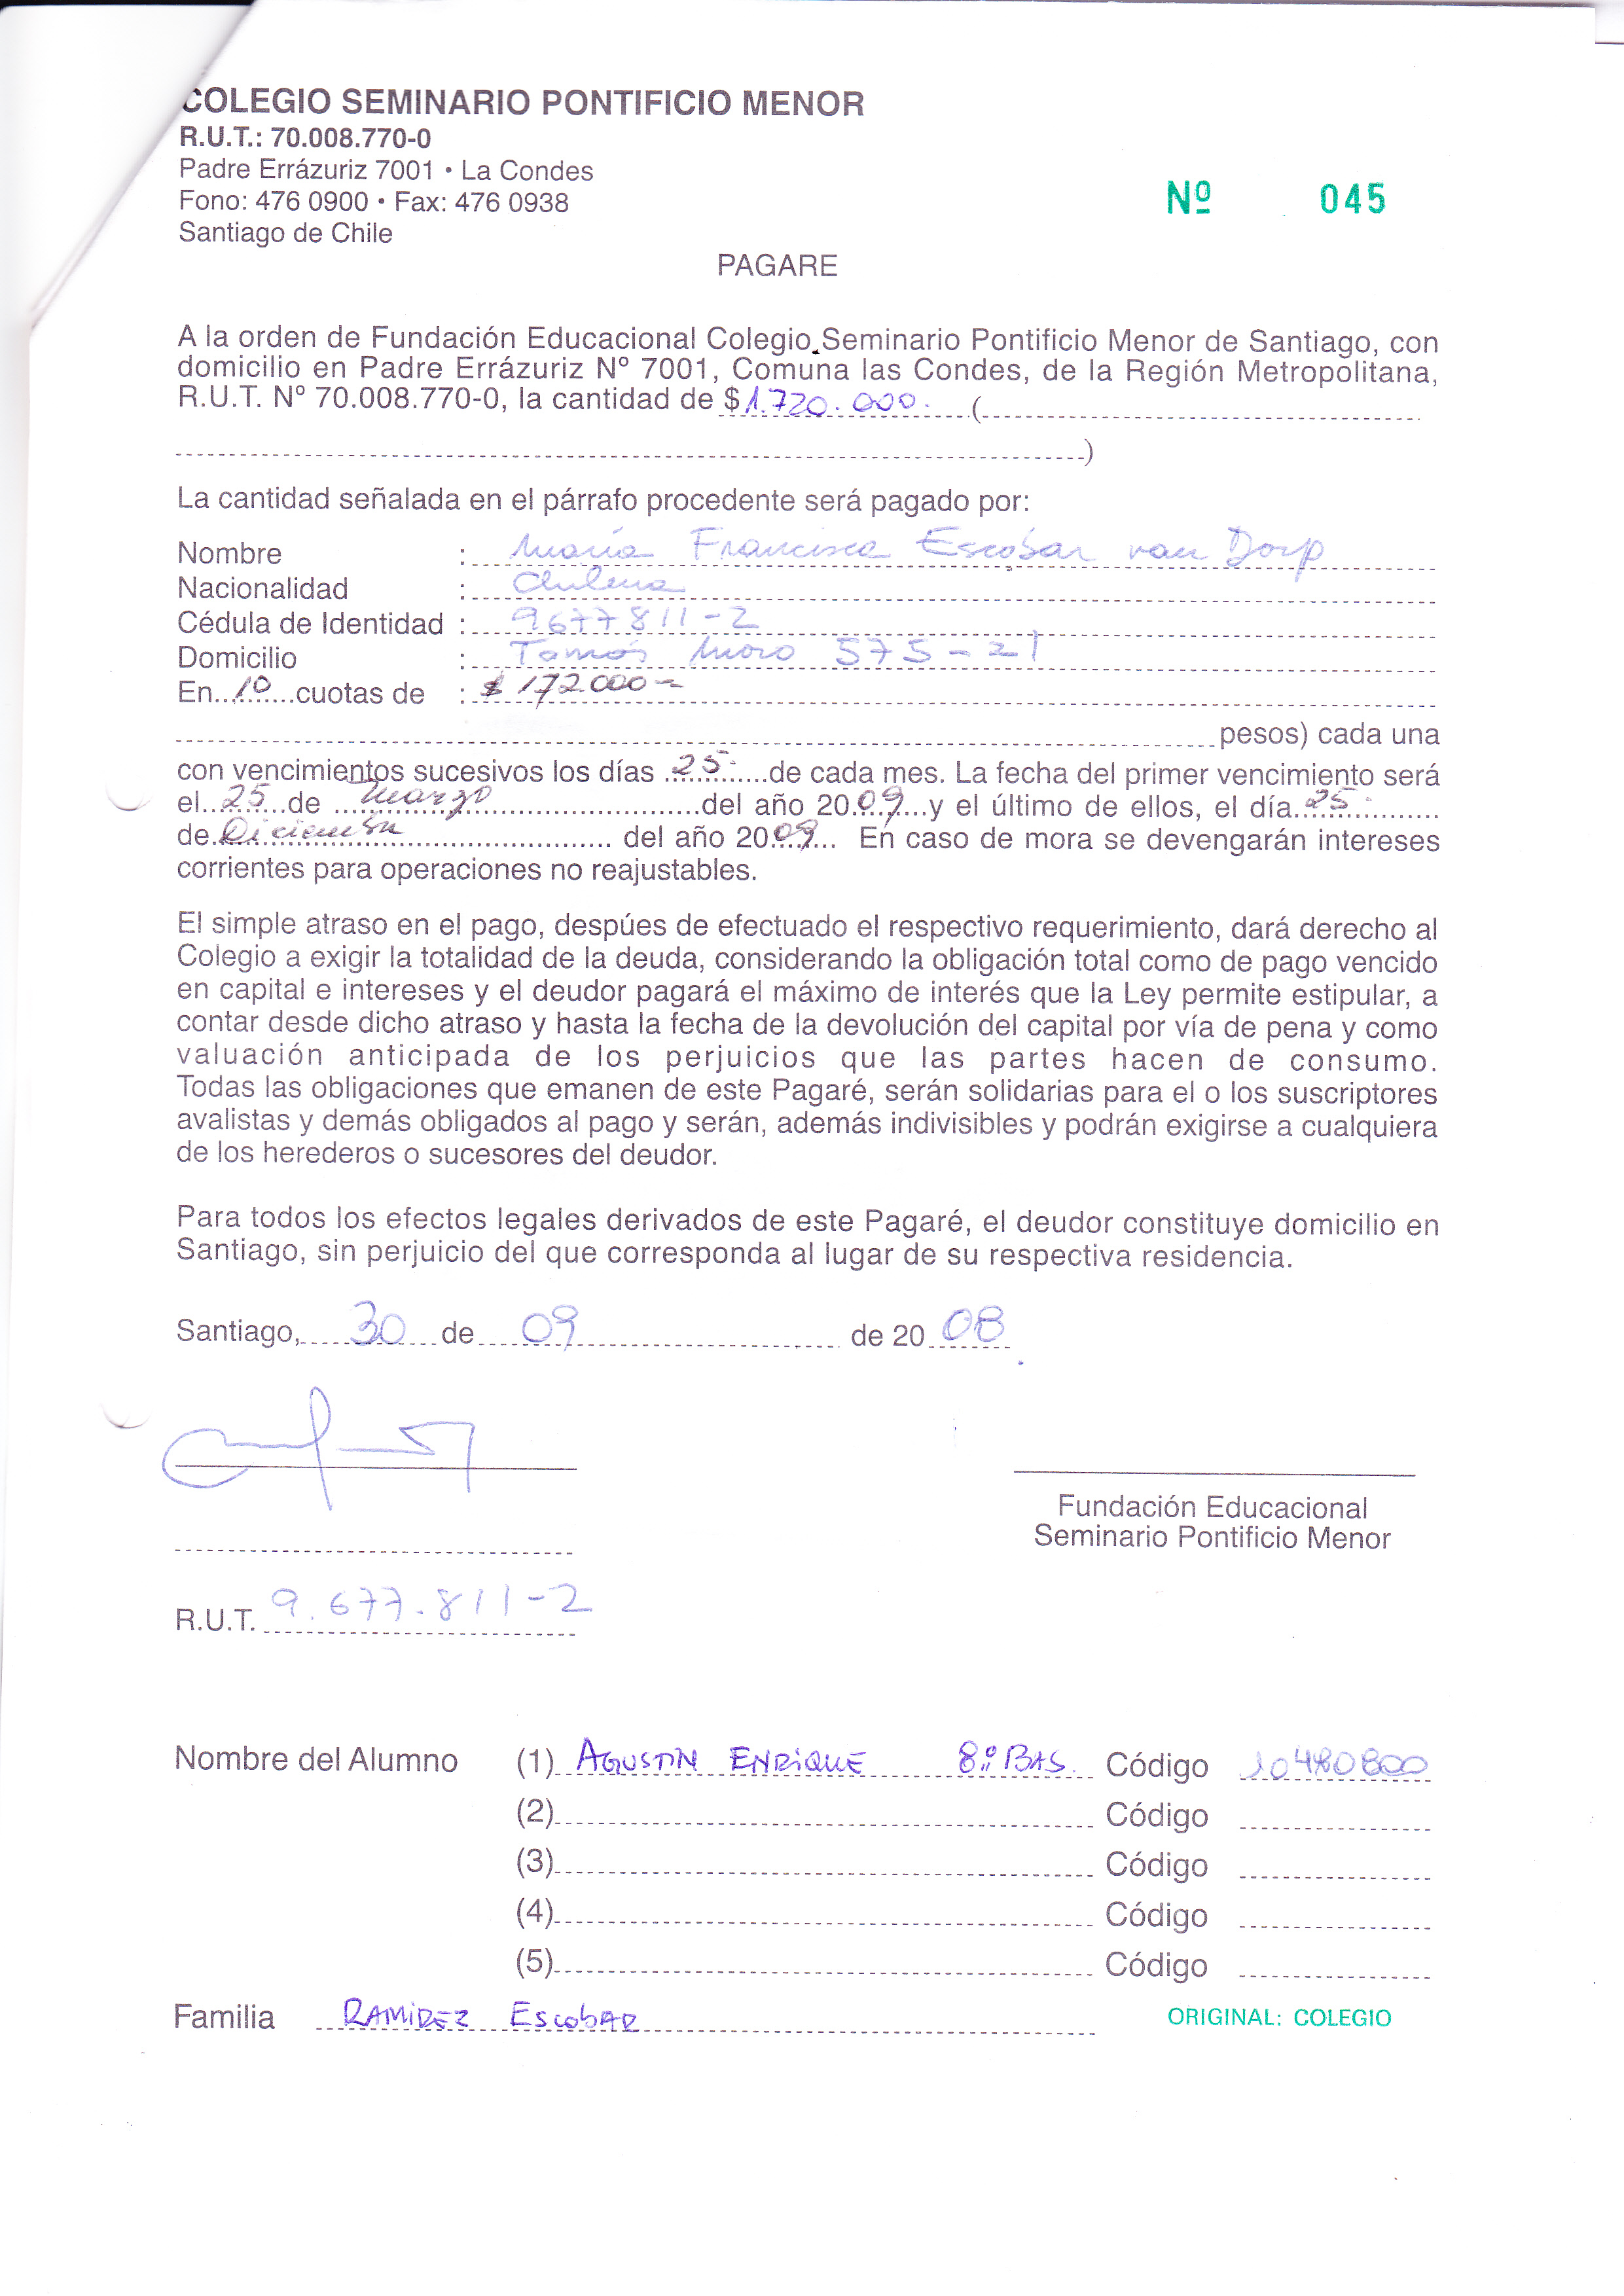 COLEGIO SEMINARIO PONTIFICIO MENOR
R.U.T.: 70.008.770-0
Padre Errázuriz 7001 • La Condes
Fono: 476 0900 • Fax: 476 0938
Santiago de Chile
Nº 045
PAGARE
A la orden de Fundación Educacional Colegio Seminario Pontificio Menor de Santiago, con
domicilio en Padre Errázuriz Nº 7001, Comuna las Condes, de la Región Metropolitana,
R.U.T. Nº 70.008.770-0, la cantidad de $ 1.720.000.- (
)
La cantidad señalada en el párrafo procedente será pagado por:
Nombre : María Francisca Escobar van Dorp
Nacionalidad : Chilena
Cédula de Identidad : 9677811-2
Domicilio : Tomás Moro 575-21
En 10 cuotas de : $ 172.000-
pesos) cada una
con vencimientos sucesivos los días 25 de cada mes. La fecha del primer vencimiento será
el 25 de Marzo del año 2009 y el último de ellos, el día 25
de Diciembre del año 2009. En caso de mora se devengarán intereses
corrientes para operaciones no reajustables.
El simple atraso en el pago, despúes de efectuado el respectivo requerimiento, dará derecho al
Colegio a exigir la totalidad de la deuda, considerando la obligación total como de pago vencido
en capital e intereses y el deudor pagará el máximo de interés que la Ley permite estipular, a
contar desde dicho atraso y hasta la fecha de la devolución del capital por vía de pena y como
valuación anticipada de los perjuicios que las partes hacen de consumo.
Todas las obligaciones que emanen de este Pagaré, serán solidarias para el o los suscriptores
avalistas y demás obligados al pago y serán, además indivisibles y podrán exigirse a cualquiera
de los herederos o sucesores del deudor.
Para todos los efectos legales derivados de este Pagaré, el deudor constituye domicilio en
Santiago, sin perjuicio del que corresponda al lugar de su respectiva residencia.
Santiago, 30 de 09 de 20 08
Fundación Educacional
Seminario Pontificio Menor
R.U.T. 9.677.811-2
Nombre del Alumno (1) AGUSTIN ENRIQUE 8.º BAS. Código 10480800
(2) Código
(3) Código
(4) Código
(5) Código
Familia RAMIREZ ESCOBAR
ORIGINAL: COLEGIO